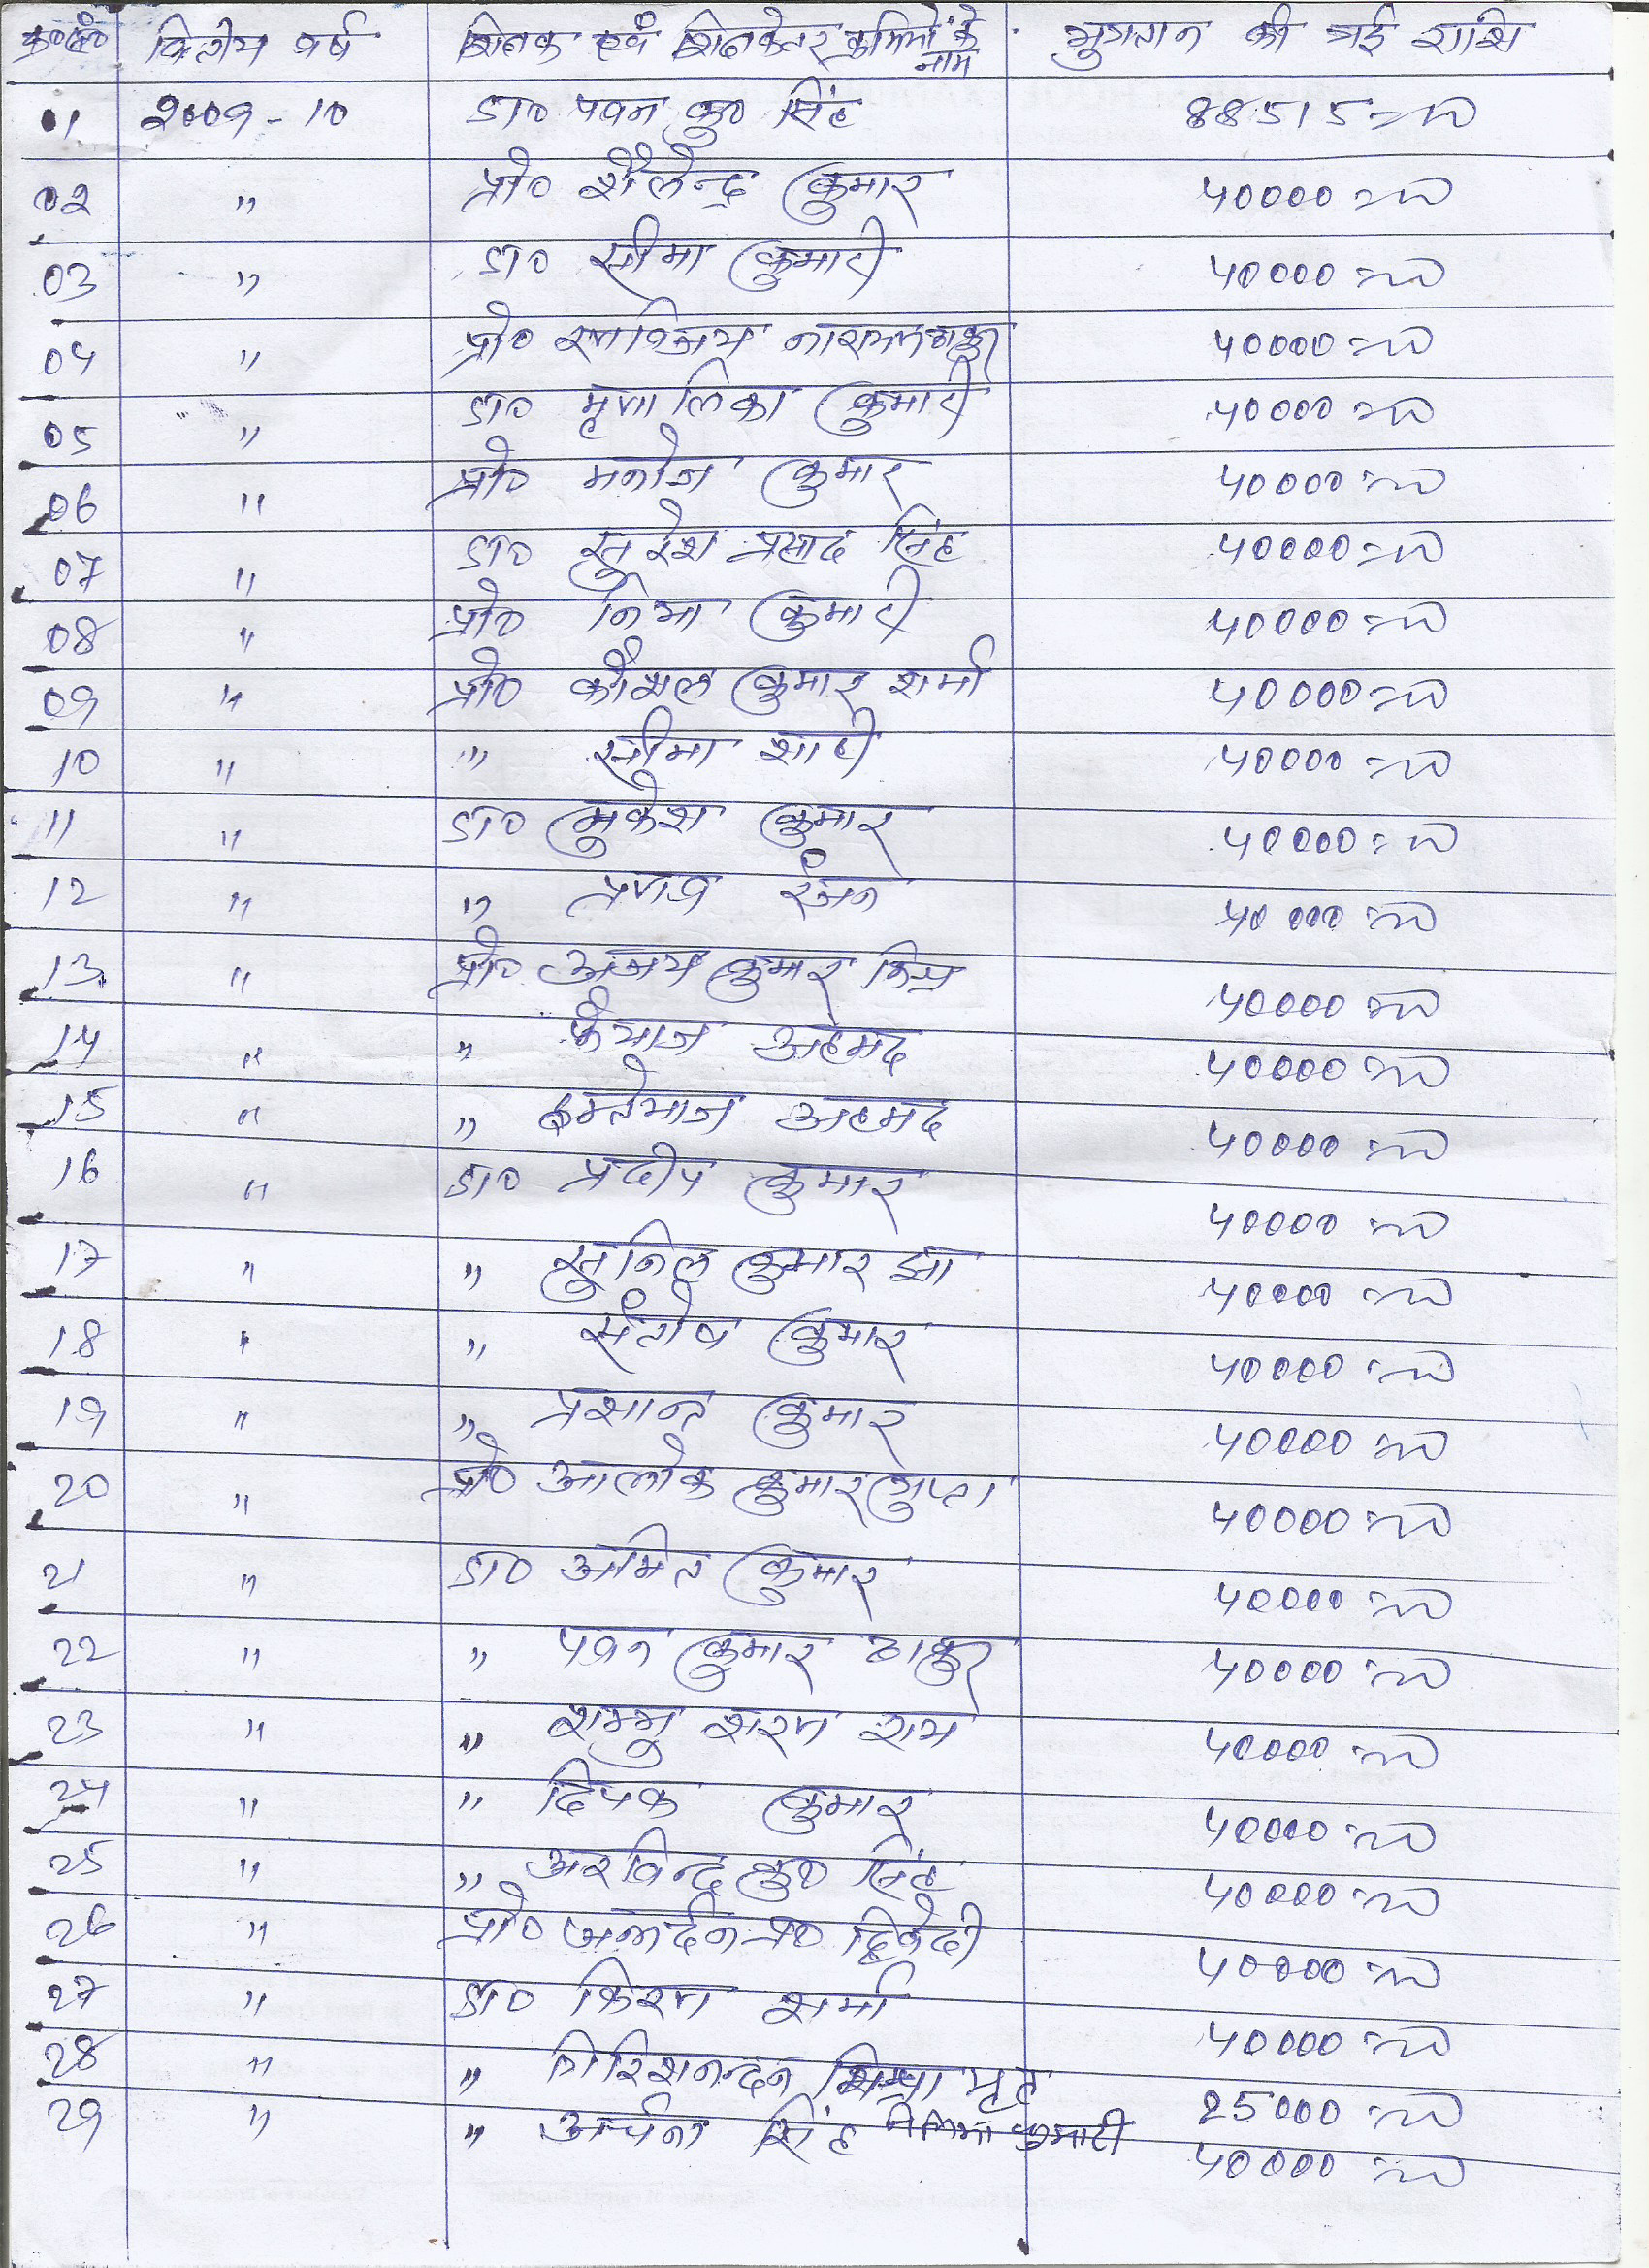 क्र०सं० वित्तीय वर्ष शिक्षक एवं शिक्षकेतर कर्मियों के नाम भुगतान की गई राशि
01 2009-10 डा० पवन कु० सिंह 88515=00
02 " प्रो० शैलेन्द्र कुमार 40000=00
03 " डा० सीमा कुमारी 40000=00
04 " प्रो० रणविजय नारायण ठाकुर 40000=00
05 " डा० मृणालिका कुमारी 40000=00
06 " प्रो० मनोज कुमार 40000=00
07 " डा० सुरेश प्रसाद सिंह 40000=00
08 " प्रो० निभा कुमारी 40000=00
09 " प्रो० कौशल कुमार शर्मा 40000=00
10 " " सीमा शाही 40000=00
11 " डा० मुकेश कुमार 40000=00
12 " " प्रणव रंजन 40000=00
13 " प्रो० अजय कुमार मिश्र 40000=00
14 " " फैयाज अहमद 40000=00
15 " " इम्तेयाज अहमद 40000=00
16 " डा० प्रदीप कुमार 40000=00
17 " " सुनिल कुमार झा 40000=00
18 " " संतोष कुमार 40000=00
19 " " प्रशान्त कुमार 40000=00
20 " प्रो० आलोक कुमार गुप्ता 40000=00
21 " डा० अमित कुमार 40000=00
22 " " पवन कुमार ठाकुर 40000=00
23 " " शम्भु शरण राय 40000=00
24 " " दिपक कुमार 40000=00
25 " " अरविन्द कु० सिंह 40000=00
26 " प्रो० जनार्दन प्र० द्विवेदी 40000=00
27 " डा० किरण शर्मा 40000=00
28 " " गिरिशनन्दन 25000=00
29 " " अर्चना सिंह निलिमा कुमारी 40000=00